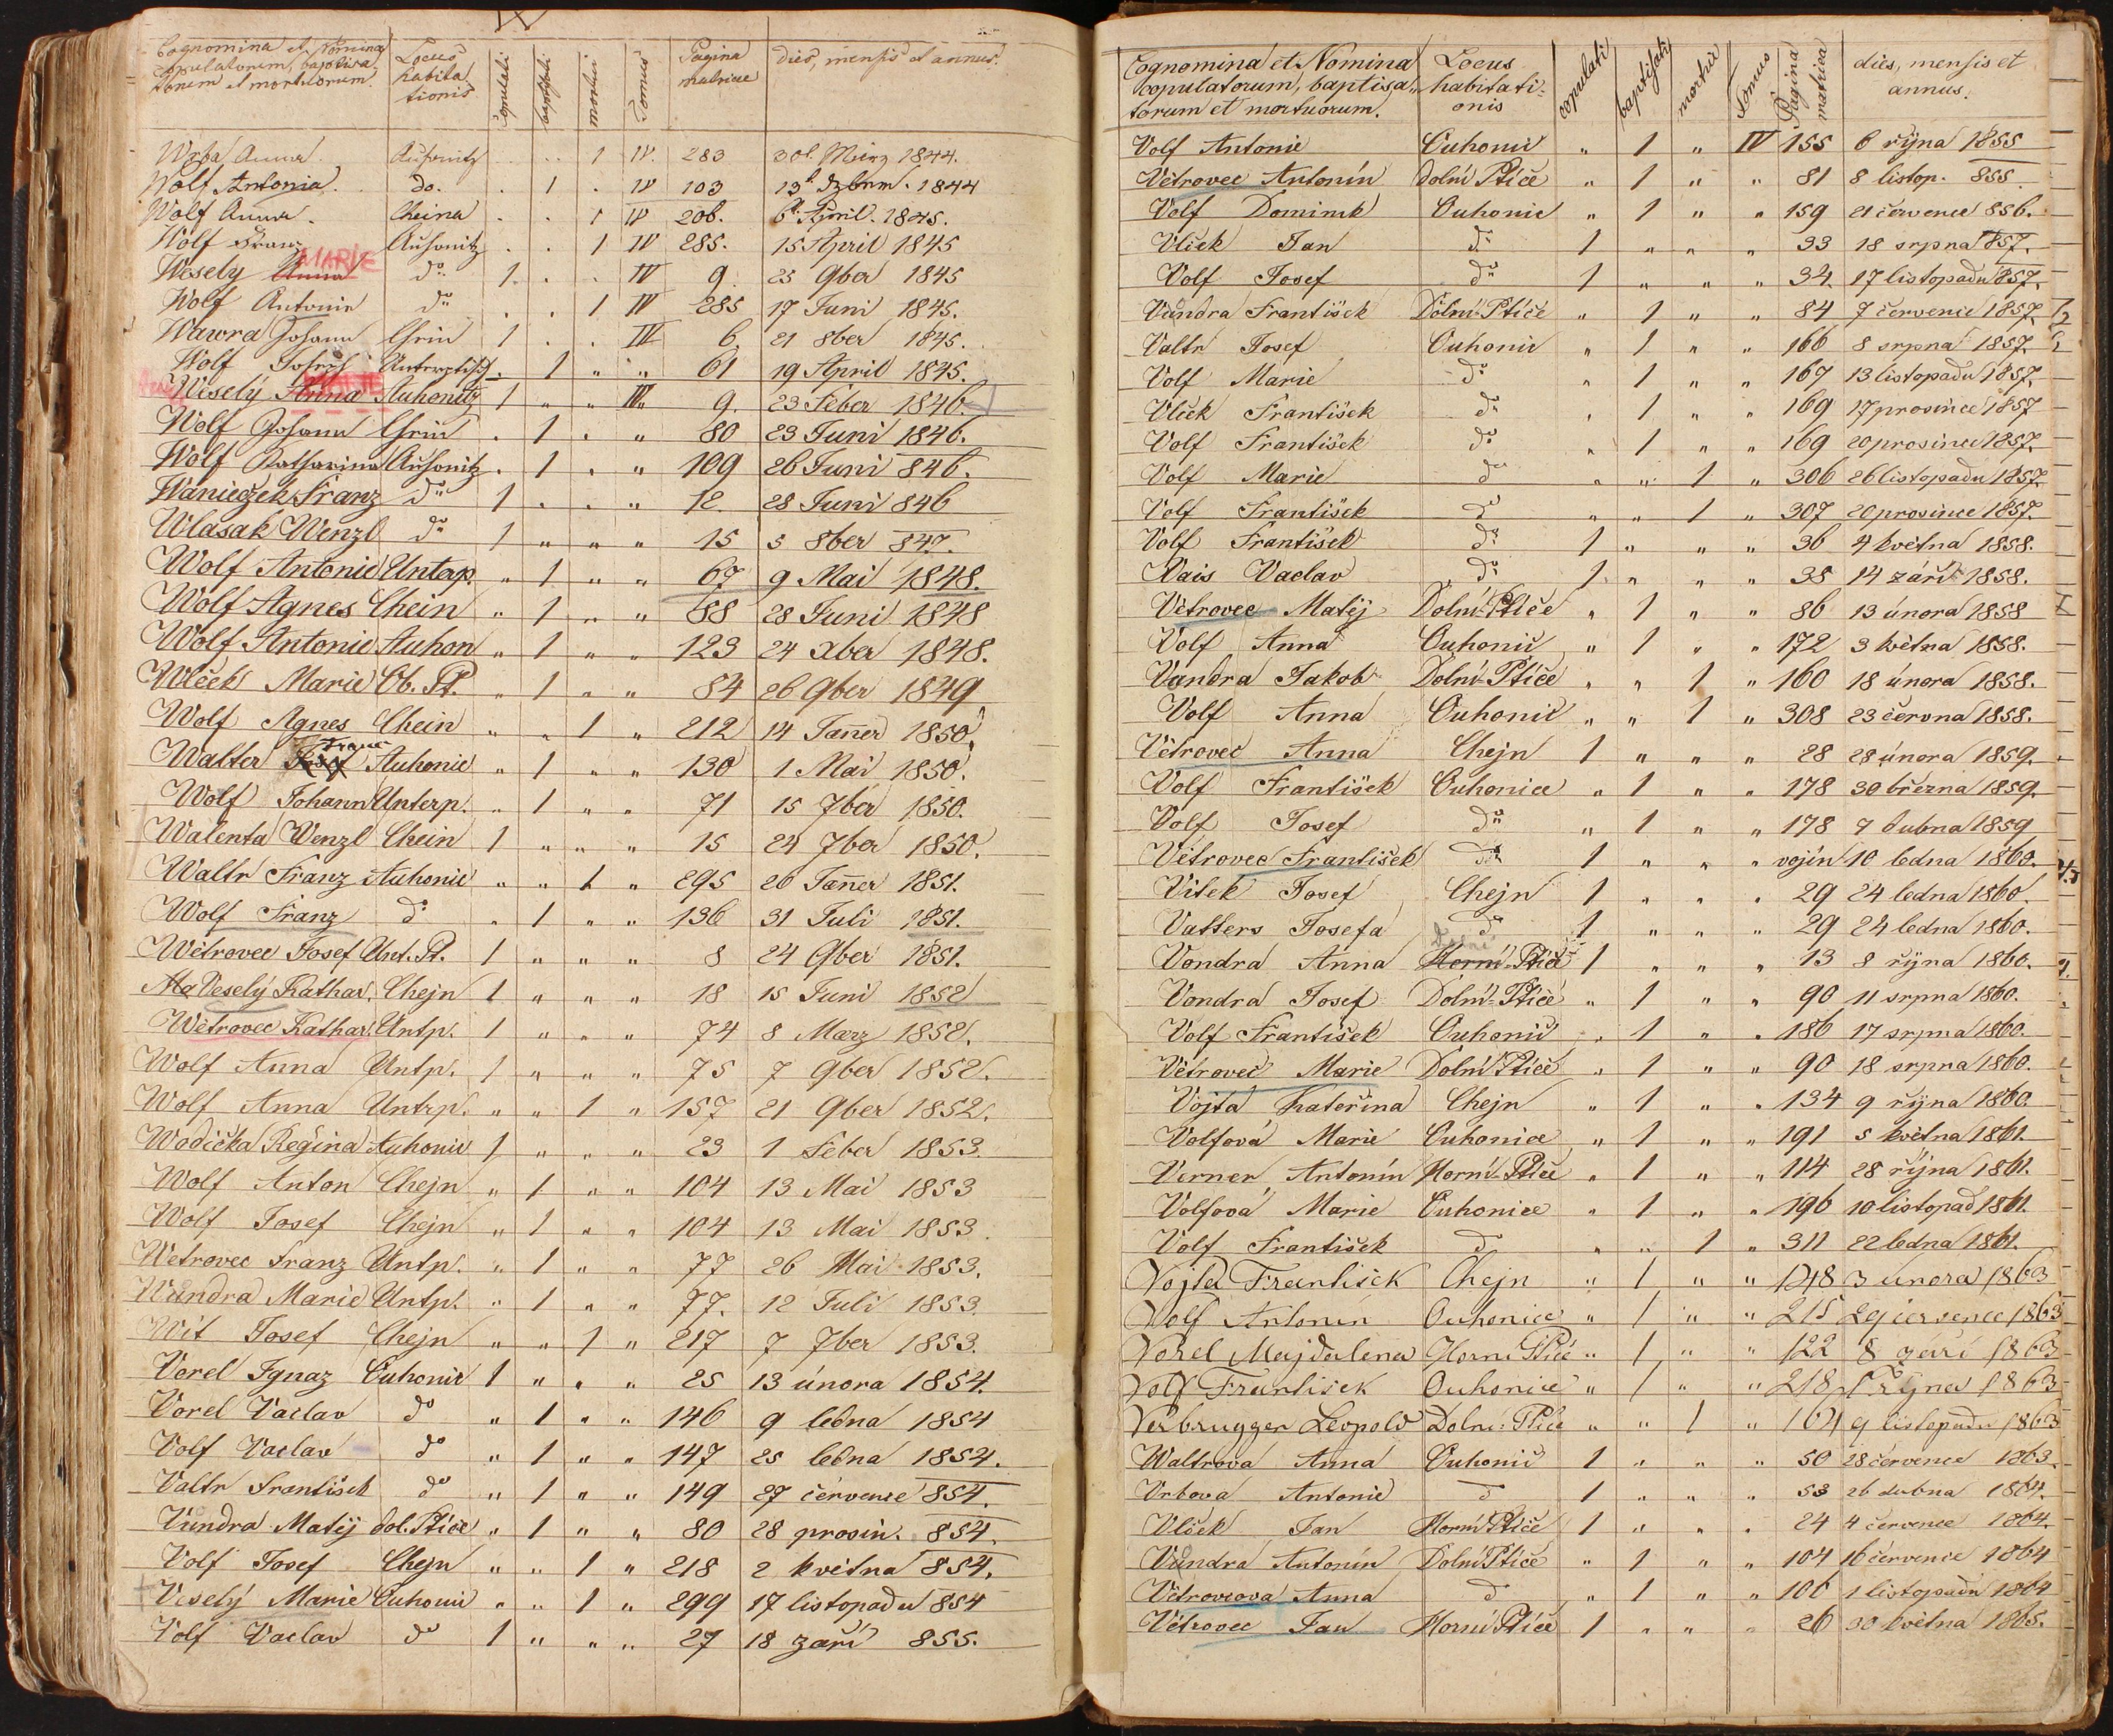 Cognomina et Nomina
copulatorum, baptisa-
torum et mortuorum.
Locus habitationis
copulati
baptisati
mortui
Tomus
Pagina matricae
dies, mensis et annus.
Wrba Anna Auhonitz . .. 1 IV. 283 30t. März 1844.
Wolf Antonia. do. . 1 . IV 103 13t Dzbrm. 1844
Wolf Anna. Cheina . . 1 IV 206. 6t April. 1845.
Wolf Franz Auhonitz . . 1 IV 285. 15 April 1845
Wesely Anna MARIE do 1. . . IV 9. 23 9ber 1845
Wolf Antonie do . . 1 IV 285 17 Juni 1845.
Wawra Johann Chein 1 . . IV 6. 21 8ber 1845.
Wolf Joseph . 1 " " 61 19 April 1845.
Wesely Anna Auhonitz 1 " " IV" 9. 23 Feber 1846.
Wolf Johann Chein . 1 . " 80 23 Juni 1846.
Wolf Katharina Auhonitz . 1 . " 109 26 Juni 846.
Wanieczek Franz do 1 . . " 12. 28 Juni 846
Wlasak Wenzl do 1 " " " 15 5 8ber 847.
Wolf Antonie Unterp. " 1 " " 67 9 Mai 1848.
Wolf Agnes Chein " 1 " " 88 28 Juni 1848
Wolf Antonie Auhon " 1 " " 123 24 Xber 1848.
Wlček Marie Ob. Pt. " 1 " " 84 26 9ber 1849
Wolf Agnes Chein " " 1 " 212 14 Jan̄er 1850.
Walter Josef Franc Auhonic " 1 " " 130 1 Mai 1850.
Wolf Johann Unterp. " 1 " " 71 15 7ber 1850.
Walenta Wenzl Chein 1 " " " 15 24 7ber 1850.
Waltr Franz Auhonic " " 1 " 295 26 Jan̄er 1851.
Wolf Franz do " 1 " " 136 31 Juli 1851.
Wětrovec Josef Unt. Pt. 1 " " " 8 24 9ber 1851.
Veselý Kathar. Chejn 1 " " " 18 15 Juni 1852
Wětrovec Kathar. Untp. 1 " " " 74 8 Mærz 1852.
Wolf Anna Untp. 1 " " " 75 7 9ber 1852.
Wolf Anna Untrp. " " 1 " 157 21 9ber 1852.
Wodička Regina Auhonic 1 " " " 23 1 Feber 1853.
Wolf Anton Chejn " 1 " " 104 13 Mai 1853
Wolf Josef Chejn " 1 " " 104 13 Mai 1853.
Wetrovec Franz Untp. " 1 " " 77 26 Mai 1853.
Wundra Marie Untp. " 1 " " 77. 12 Juli 1853.
Wit Josef Chejn " " 1 " 217 7 7ber 1853.
Vorel Ignaz Ouhonic 1 " " " 25 13 února 1854.
Vorel Vaclav do " 1 " " 146 9 ledna 1854
Volf Vaclav do " 1 " " 147 25 ledna 1854.
Valtr František do " 1 " " 149 27 července 854.
Vundra Matěj dol. Ptice " 1 " " 80 28 prosin. 854.
Volf Josef Chejn " " 1 " 218 2 května 854.
Veselý Marie Ouhonic " " 1 " 299 17 listopadu 854
Volf Vaclav do 1 " " " 27 18 září 855.
Cognomina et Nomina
copulatorum, baptisa-
torum et mortuorum.
Locus habitationis
copulati
baptisati
mortui
Tomus
Pagina matrica
dies, mensis et annus.
Volf Antonie Ouhonic " 1 " IV 155 6 října 1855
Větrovec Antonín dolní Ptíče " 1 " " 81 8 listop. 855.
Volf Dominik Ouhonic " 1 " " 159 21 července 856.
Vlček Jan do 1 " " " 33 18 srpna 857.
Volf Josef do 1 " " " 34. 17 listopadu 857.
Vundra František Dolní Ptíče " 1 " " 84 7 července 1857.
Valtr Josef Ouhonic " 1 " " 166 8 srpna 1857.
Volf Marie do " 1 " " 167 13 listopadu 1857.
Vlček František do " 1 " " 169 17 prosince 1857
Volf František do " 1 " " 169 20 prosince 1857.
Volf Marie do " " 1 " 306 26 listopadu 1857.
Volf František do " " 1 " 307 20 prosince 1857.
Volf František do 1 " " " 36 4 května 1858.
Vais Vaclav do 1 " " " 38 14 září 1858.
Větrovec Matěj Dolní Ptíče " 1 " " 86 13 února 1858
Volf Anna Ouhonic " 1 " " 172 3 května 1858.
Vundra Jakob Dolní Ptíče " " 1 " 160 18 února 1858.
Volf Anna Ouhonic " " 1 " 308 23 června 1858.
Větrovec Anna Chejn 1 " " " 28 28 února 1859.
Volf František Ouhonice " 1 " " 178 30 března 1859.
Volf Josef do " 1 " " 178 7 dubna 1859
Větrovec František do 1 " " " vojín 10 ledna 1860.
Vitek Josef Chejn 1 " " " 29 24 ledna 1860.
Valters Josefa do 1 " " " 29 24 ledna 1860.
Vondra Anna Horní Ptíče Dolní 1 " " " 13 8 října 1860.
Vondra Josef Dolní Ptíče " 1 " " 90 11 srpna 1860.
Volf František Ouhonic " 1 " " 186 17 srpna 1860.
Větrovec Marie Dolní Ptíče " 1 " " 90 18 srpna 1860.
Vojta Kateřina Chejn " 1 " " 134 9 října 1860.
Volfová Marie Ouhonice " 1 " " 191 5 května 1861.
Verner Antonín Horní Ptíče " 1 " " 114 28 října 1861.
Volfová Marie Ouhonice " 1 " " 196 10 listopad 1861.
Volf František do " " 1 " 311 22 ledna 1861.
Vojta František Chejn " 1 " " 148 3 února 1863
Volf Antonín Ouhonice " 1 " " 215 29 července 1863
Vorel Majdalena Horní Ptíče " 1 " " 122 8 září 1863
Volf František Ouhonice " 1 " " 218 října 1863
Verbrugger Leopold Dolní Ptíče " " 1 " 164 9 listopadu 1863
Waltrová Anna Ouhonic 1 " " " 50 28 července 1863.
Vrbová Antonie do 1 " " " 53 26 dubna 1864.
Vlček Jan Horní Ptíče 1 " " " 24 4 července 1864.
Vundra Antonín Dolní Ptíče " 1 " " 104 16 července 1864
Větrovcová Anna do " 1 " " 106 1 listopadu 1864
Větrovec Jan Horní Ptíče 1 " " " 26 30 května 1865.